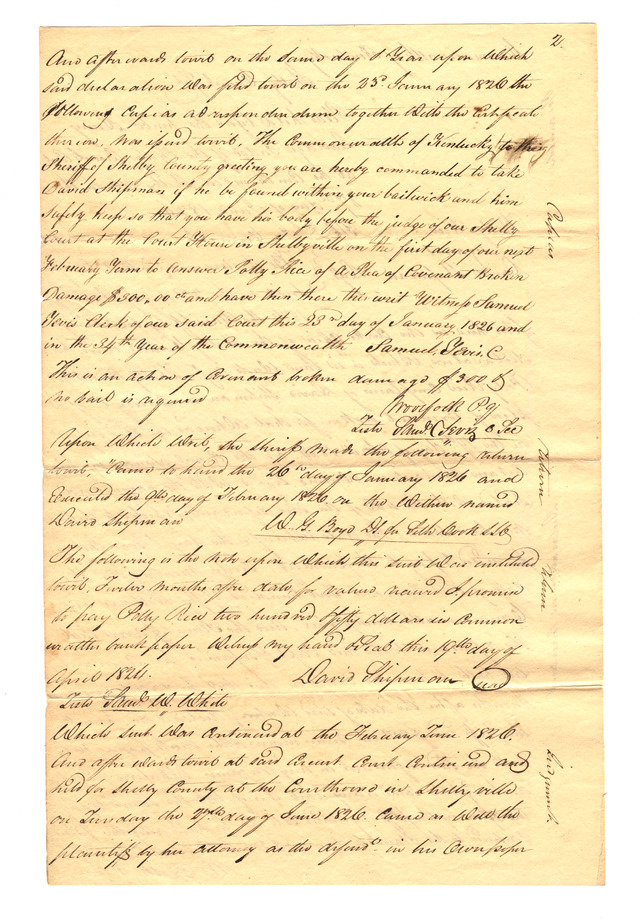 2.
And afterwards towit on the same day & Year upon Which
said declaration Was filed towit on the 23d January 1826 the
following Capias ad respondendum together With the Certificate
thereon Was issued towit, The Commonwealth of Kentucky to the
Sheriff of Shelby County greeting you are hereby commanded to take
David Shipman if he be found within your bailwick and him
safely keep so that you have his body before the judge of our Shelby
Court at the Court House in Shelbyville on the first day of our next
February Term to answer Polly Rice of A Plea of Covenant broken
Damage $500.00 cts and have then there this writ Witness Samuel
Tevis Clerk of our said Court this 23rd day of January 1826 and
in the 34th Year of the Commonwealth Samuel Tevis, C
Capias
This is an action of Covenant broken damage $500 &
no bail is required
Woolfolk P. q
Teste Saml Tevis C S C C
Upon Which Writ, the sheriff made the following return
towit, "Came to hand the 26th day of January 1826 and
Executed the 9th day of February 1826 on the Within named
David Shipman W. G. Boyd DS. for Seth Cook SSC
Return
The following is the Note upon Which this suit Was instituted
towit, Twelve months after date, for value received I promise
to pay Polly Rice two hundred fifty dollars in Common
wealths bank paper Witness my hand & Seal this 19th day of
April 1824. David Shipman Seal
Teste Saml W. White
Which suit Was Continued at the February Term 1826.
And afterwards towit at said Circuit Court Continued and
held for Shelby County at the Courthouse in Shelbyville
on Tuesday the 27th day of June 1826. Came as Well the
plaintiff by her attorney as the defendt. in his Own proper
Judgment.